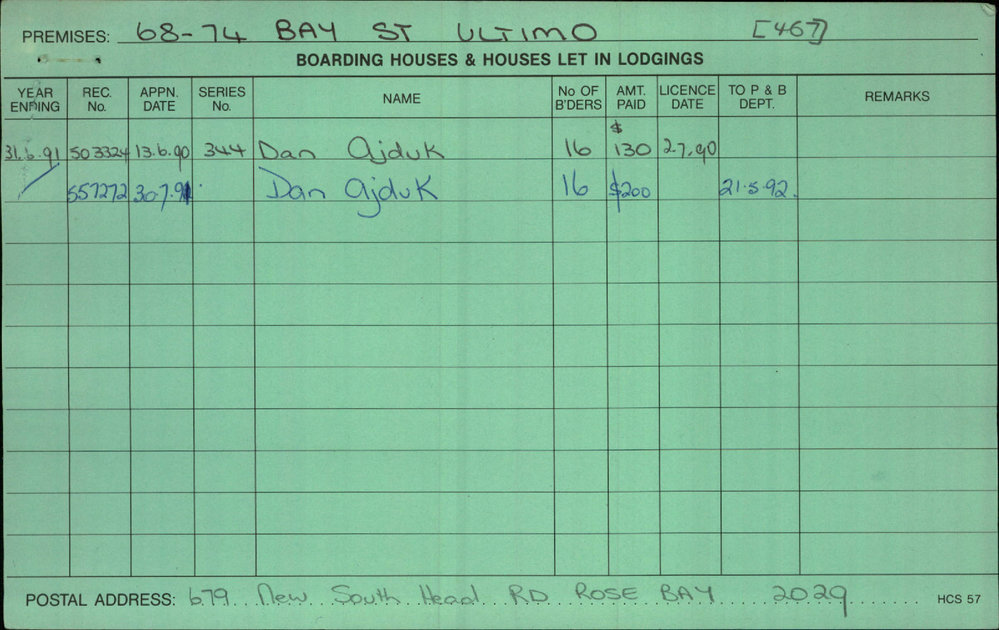 PREMISES: 68-74 BAY ST ULTIMO [467]
BOARDING HOUSES & HOUSES LET IN LODGINGS
YEAR ENDING REC. No. APPN. DATE SERIES No. NAME No OF B'DERS AMT. PAID LICENCE DATE TO P & B DEPT. REMARKS
31.6.91 503324 13.6.90 344 Dan Ajduk 16 $ 130 2.7.90
557272 30.7.91 Dan Ajduk 16 $200 21.5.92.
POSTAL ADDRESS: 679 New South Head RD ROSE BAY 2029 HCS 57